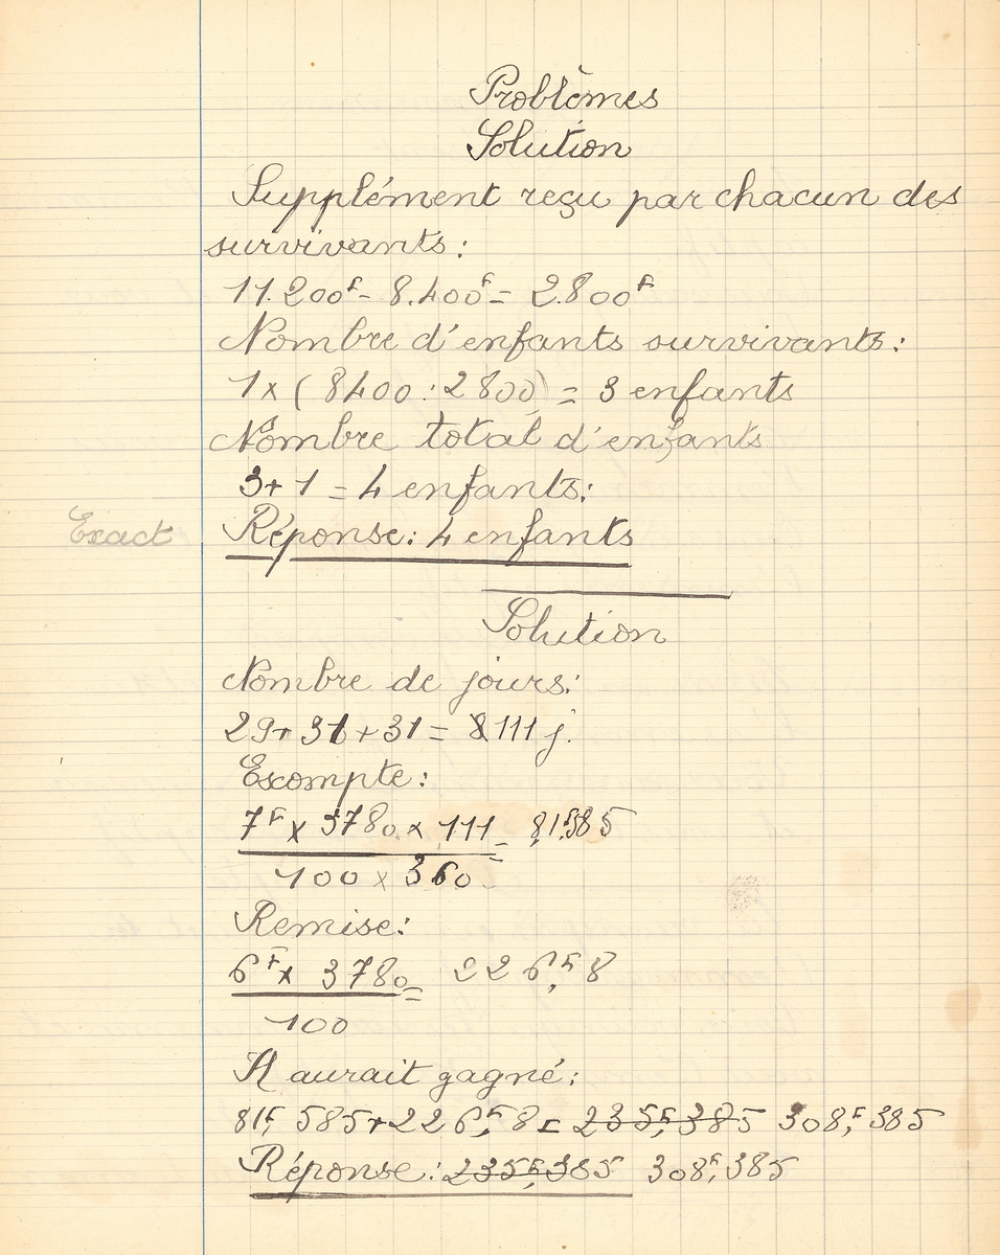 Problèmes
Solution
Supplément reçu par chacun des
survivants:
11.200F - 8.400F = 2.800F
Nombre d'enfants survivants:
1 x (8400 : 2800) = 3 enfants
Nombre total d'enfants
3 + 1 = 4 enfants:
Exact Réponse: 4 enfants
Solution
Nombre de jours:
29 + 31 + 31 = 111 j.
Escompte:
7F x 3780 x 111 = 81F,585
100 x 360
Remise:
6F x 3780 = 226F,8
100
Il aurait gagné:
81F,585 + 226F,8 = 235F,385 308F,385
Réponse: 235F,385 308F,385